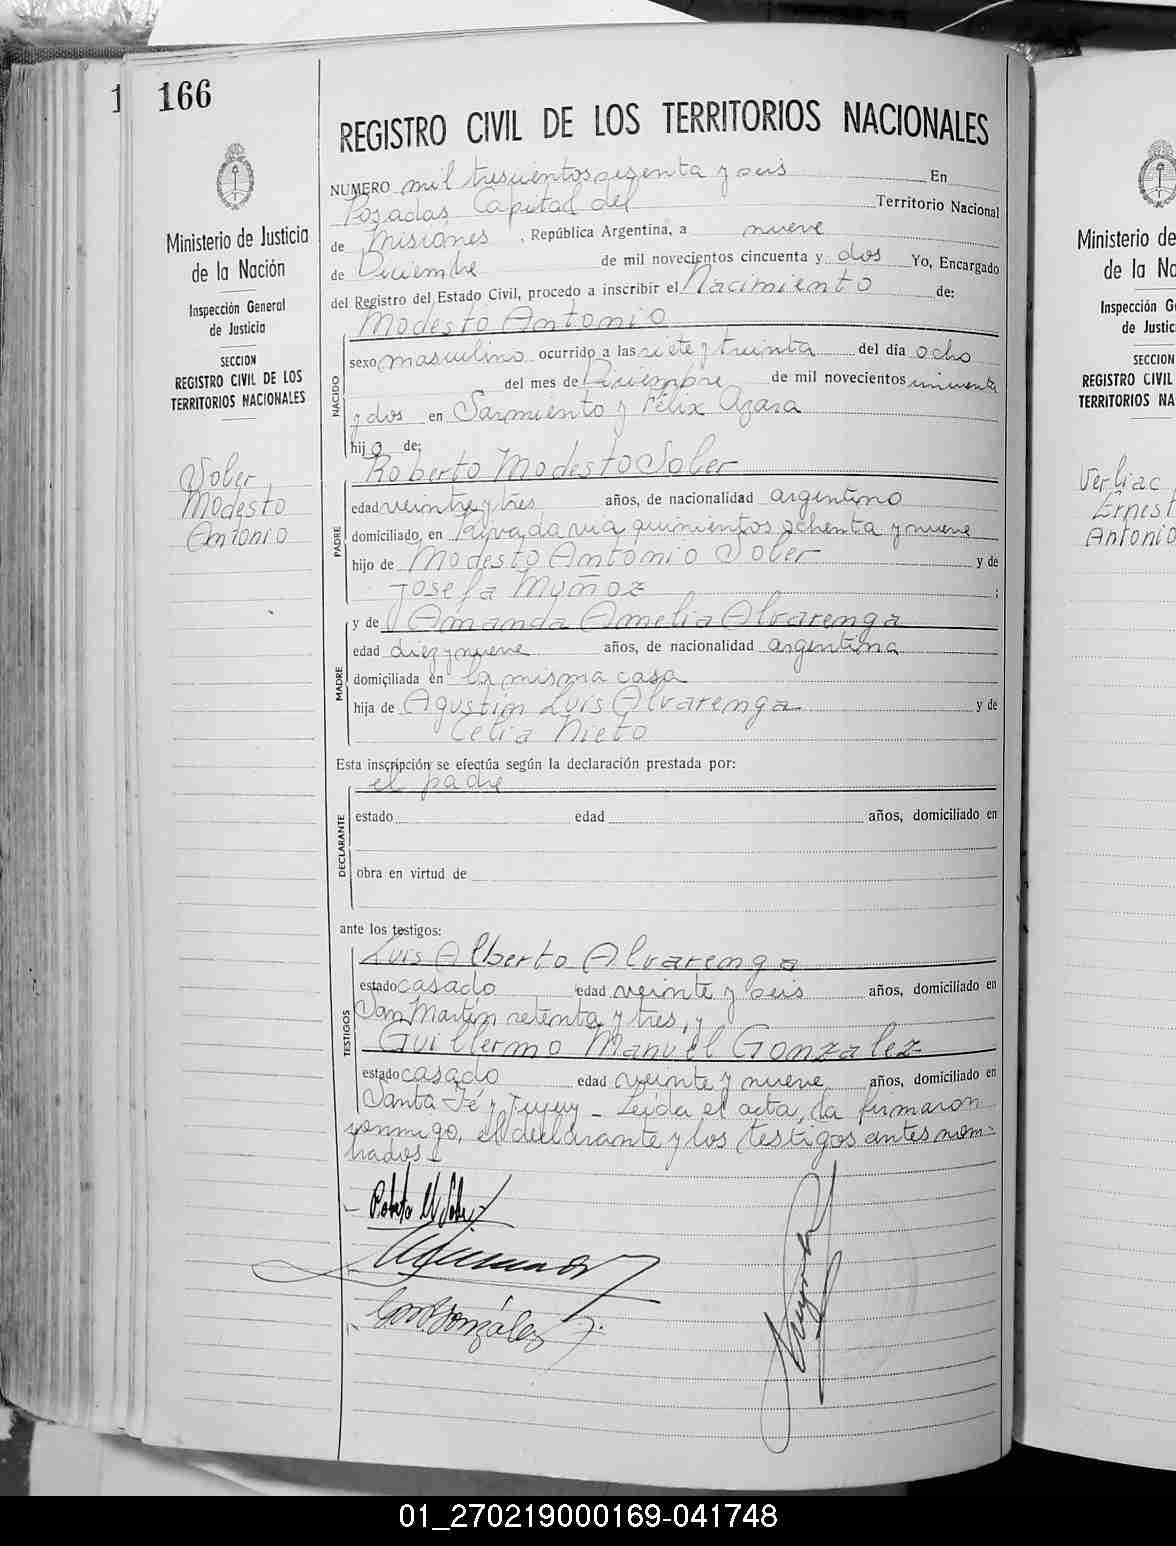 166
REGISTRO CIVIL DE LOS TERRITORIOS NACIONALES
Ministerio de Justicia
de la Nación
Inspección General
de Justicia
SECCION
REGISTRO CIVIL DE LOS
TERRITORIOS NACIONALES
Soler
Modesto
Antonio
NUMERO mil trescientos sesenta y seis En
Posadas Capital del Territorio Nacional
de Misiones, República Argentina, a nueve
de Diciembre de mil novecientos cincuenta y dos Yo, Encargado
del Registro del Estado Civil, procedo a inscribir el Nacimiento de:
NACIDO
Modesto Antonio
sexo masculino ocurrido a las siete y treinta del día ocho
del mes de Diciembre de mil novecientos cincuenta
y dos en Sarmiento y Félix Azara
hijo de:
PADRE
Roberto Modesto Soler
edad veinte y tres años, de nacionalidad argentino
domiciliado en Rivadavia quinientos ochenta y nueve
hijo de Modesto Antonio Soler y de
Josefa Muñoz ;
MADRE
y de Amanda Amelia Alvarenga
edad diez y nueve años, de nacionalidad argentina
domiciliada en la misma casa
hija de Agustín Luis Alvarenga y de
Celia Nieto
Esta inscripción se efectúa según la declaración prestada por:
DECLARANTE
el padre
estado edad años, domiciliado en
obra en virtud de
ante los testigos:
TESTIGOS
Luis Alberto Alvarenga
estado casado edad veinte y seis años, domiciliado en
San Martín setenta y tres, y
Guillermo Manuel Gonzalez
estado casado edad veinte y nueve años, domiciliado en
Santa Fé y Jujuy - Leída el acta, la firmaron
conmigo, el declarante y los testigos antes nom-
brados -
Roberto M Soler
González
Ministerio de
de la Na
Inspección G
de Justic
SECCION
REGISTRO CIVIL
TERRITORIOS NA
Verliac
Ernest
Antonio
01_270219000169-041748